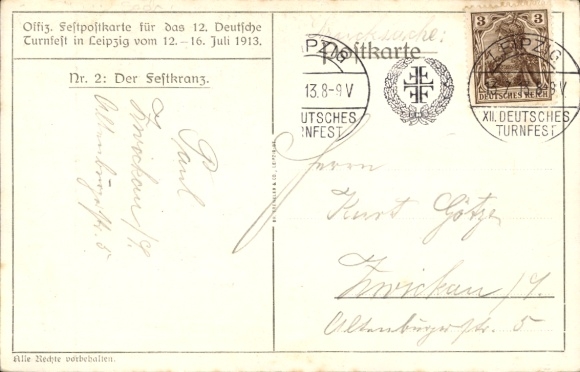 Offiz. Festpostkarte für das 12. Deutsche
Turnfest in Leipzig vom 12.–16. Juli 1913.
Nr. 2: Der Festkranz.
Paul
Zwickau i/S.
Altenburgerstr. 5
Drucksache:
Postkarte
LEIPZIG
13.8-9V
DEUTSCHES
TURNFEST
3 3
DEUTSCHES REICH
LEIPZIG
13.8-9V
XII. DEUTSCHES
TURNFEST
Herrn
Kurt Götze
Zwickau i/S.
Altenburgerstr. 5
Alle Rechte vorbehalten.